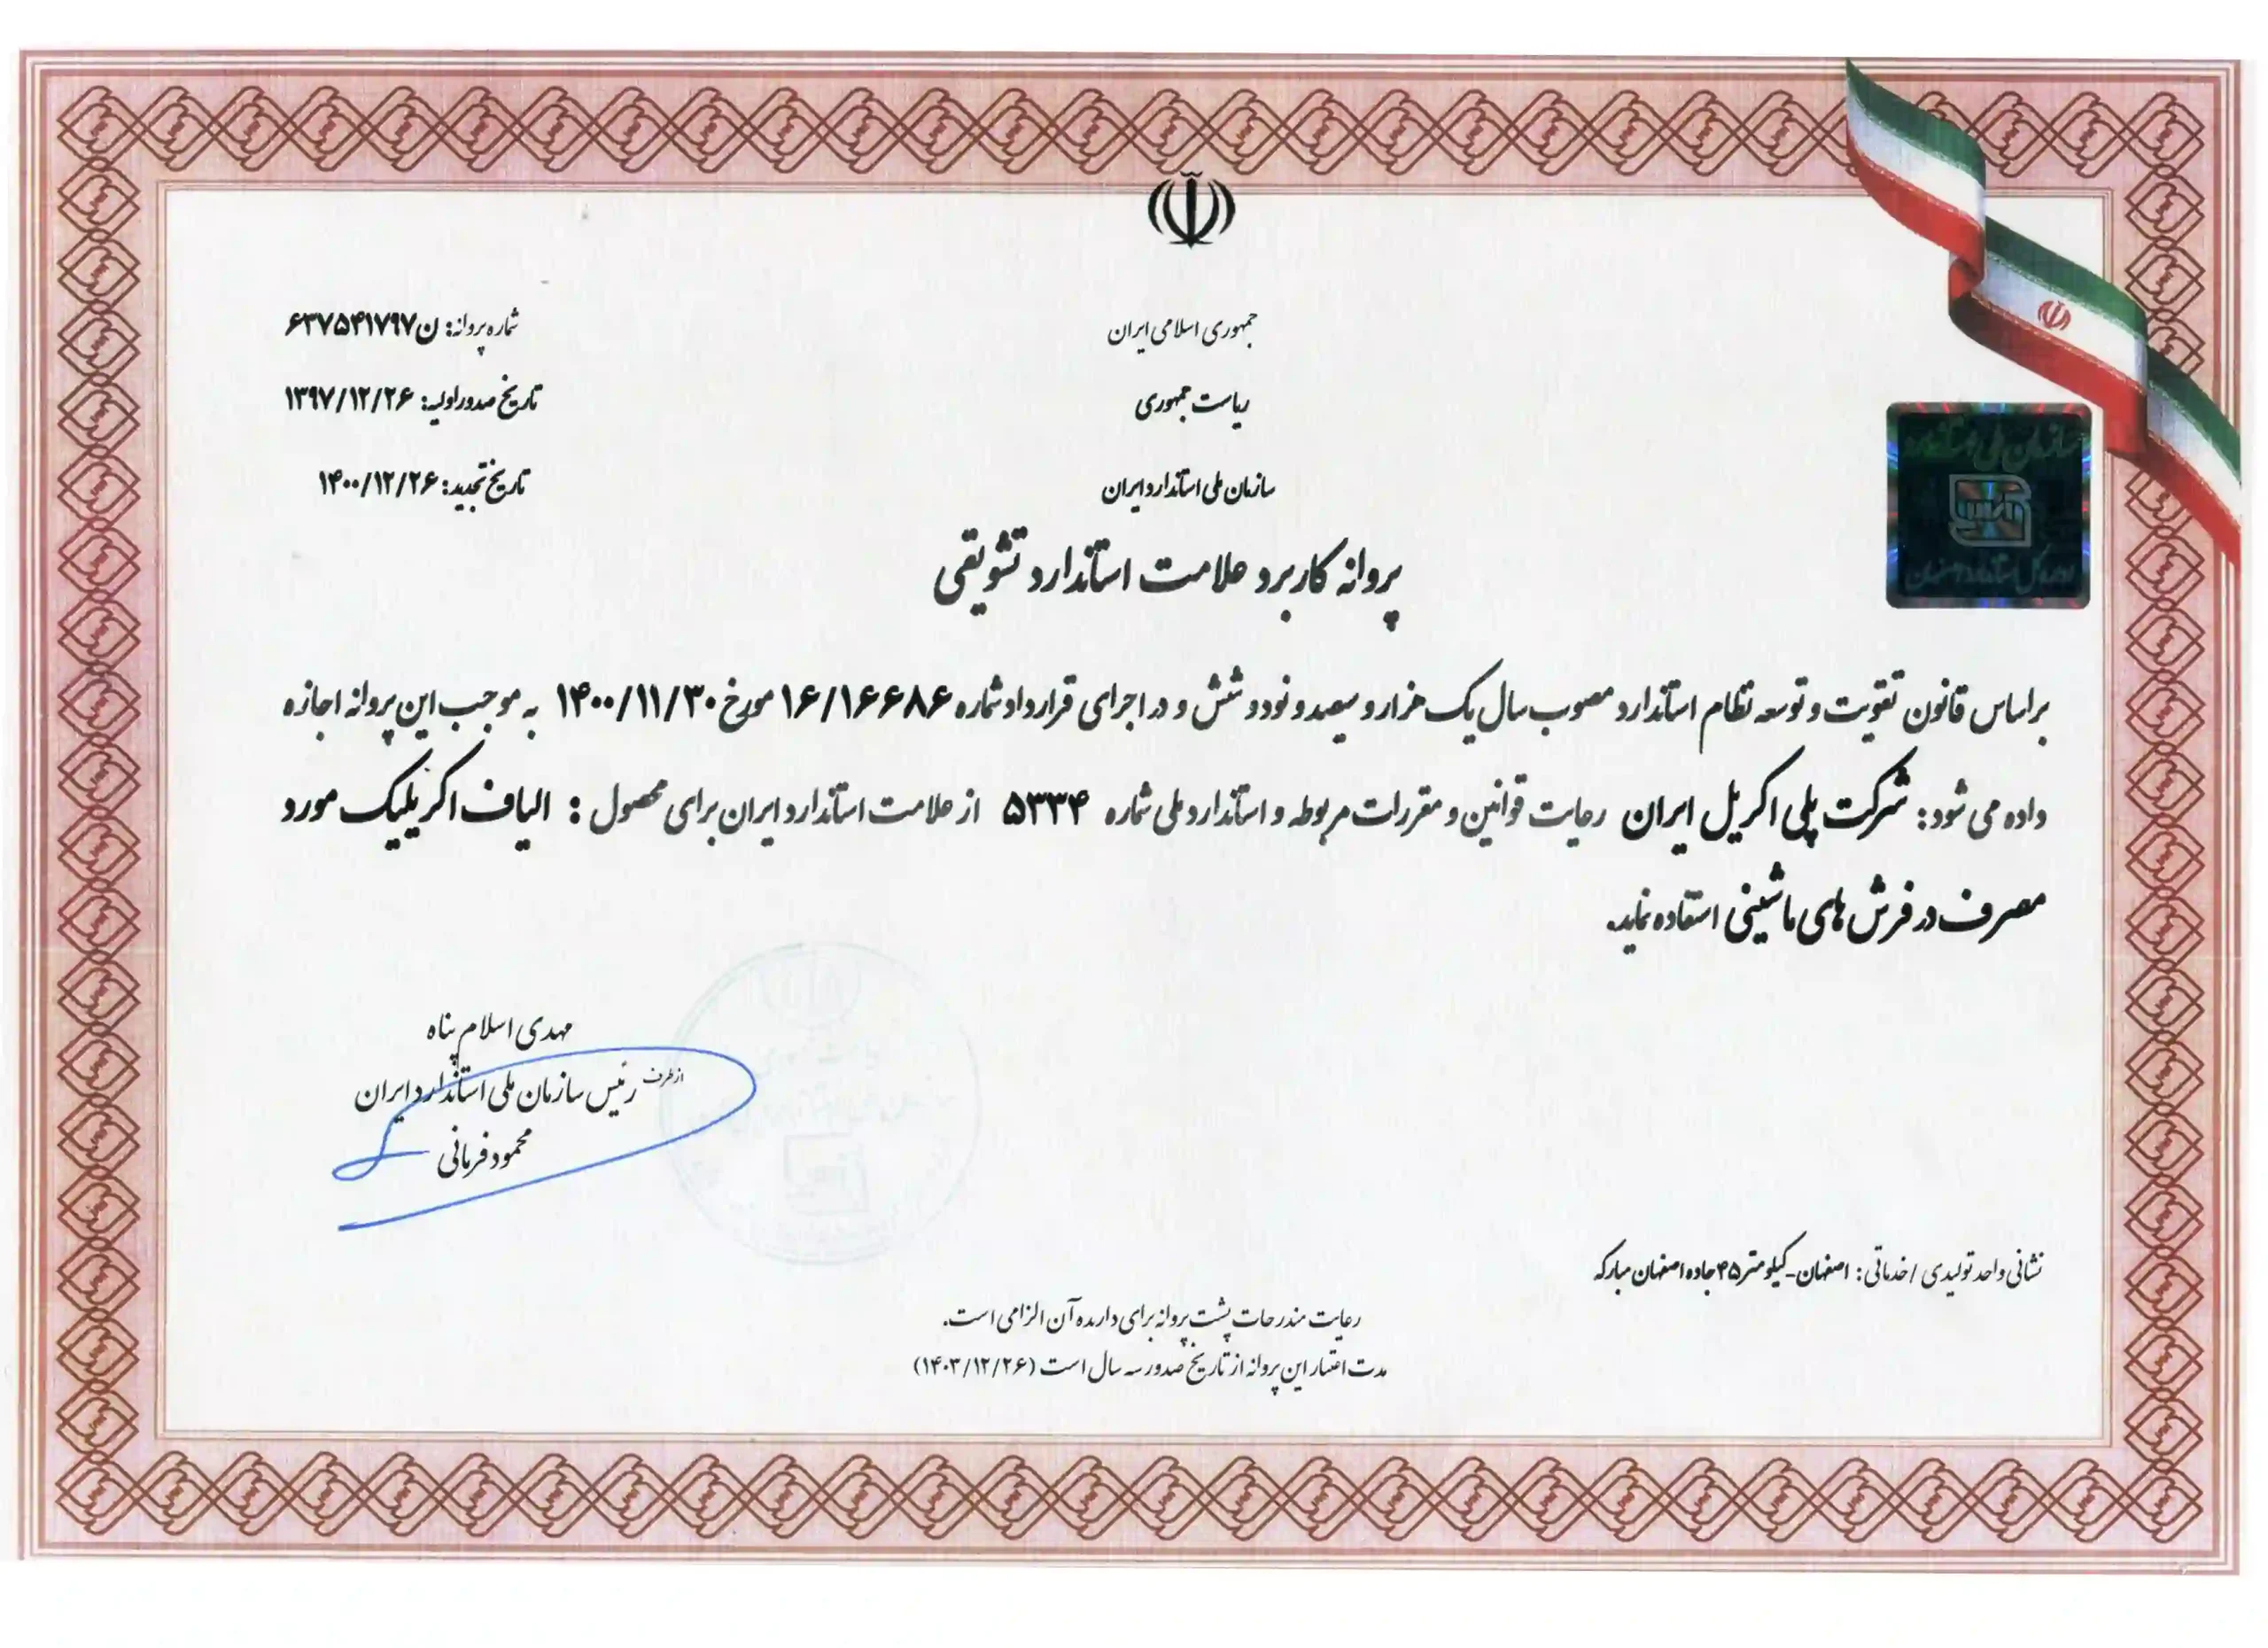 جمهوری اسلامی ایران
ریاست جمهوری
سازمان ملی استاندارد ایران
شماره پروانه: ن۶۳۷۵۴۱۷۹۷
تاریخ صدور اولیه: ۱۳۹۷/۱۲/۲۶
تاریخ تجدید: ۱۴۰۰/۱۲/۲۶
سازمان ملی استاندارد
اداره کل استاندارد اصفهان
پروانه کاربرد علامت استاندارد تشویقی
براساس قانون تقویت و توسعه نظام استاندارد مصوب سال یک هزار و سیصد و نود و شش و در اجرای قرارداد شماره ۱۶/۱۶۶۸۶ مورخ ۱۴۰۰/۱۱/۳۰ به موجب این پروانه اجازه
داده می شود: شرکت پلی اکریل ایران رعایت قوانین و مقررات مربوطه و استاندارد ملی شماره ۵۳۳۴ از علامت استاندارد ایران برای محصول : الیاف اکریلیک مورد
مصرف در فرش های ماشینی استفاده نماید.
مهدی اسلام پناه
از طرف رئیس سازمان ملی استاندارد ایران
محمود فرمانی
نشانی واحد تولیدی / خدماتی: اصفهان-کیلومتر ۴۵ جاده اصفهان مبارکه
رعایت مندرجات پشت پروانه برای دارنده آن الزامی است.
مدت اعتبار این پروانه از تاریخ صدور سه سال است (۱۴۰۳/۱۲/۲۶)